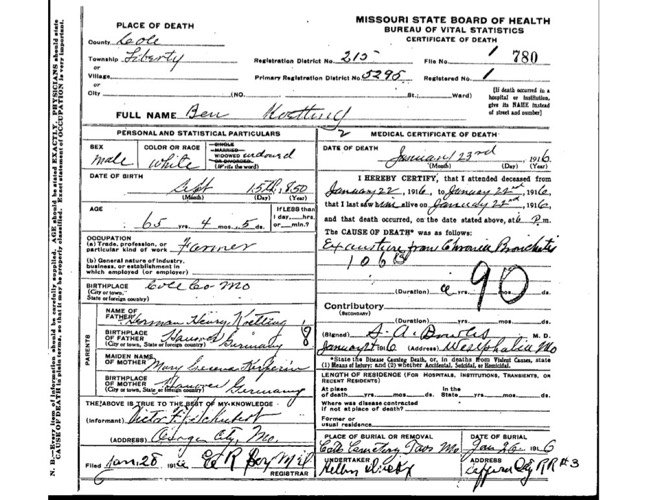 MISSOURI STATE BOARD OF HEALTH
BUREAU OF VITAL STATISTICS
CERTIFICATE OF DEATH
PLACE OF DEATH
County Cole
Township Liberty
or
Village
or
City (NO. St.; Ward)
Registration District No. 215
File No. 1 780
Primary Registration District No. 5295
Registered No. 1
[If death occurred in a
hospital or institution,
give its NAME instead
of street and number]
FULL NAME Ben Koetting
PERSONAL AND STATISTICAL PARTICULARS
SEX
male
COLOR OR RACE
white
SINGLE
MARRIED
WIDOWED
OR DIVORCED
(Write the word)
DATE OF BIRTH
Sept 15th, 1850
(Month) (Day) (Year)
AGE
65 yrs. 4 mos. 5 ds.
If LESS than
1 day, hrs.
or min.?
OCCUPATION
(a) Trade, profession, or
particular kind of work Farmer
(b) General nature of industry,
business, or establishment in
which employed (or employer)
BIRTHPLACE
(City or town,
State or foreign country)
Cole Co Mo
PARENTS
NAME OF
FATHER
Herman Henry Koetting
BIRTHPLACE
OF FATHER
(City or town, State or foreign country)
Hanover Germany
MAIDEN NAME
OF MOTHER
Mary
BIRTHPLACE
OF MOTHER
(City or town, State or foreign country)
Hanover Germany
THE ABOVE IS TRUE TO THE BEST OF MY KNOWLEDGE
(Informant) Victor
(ADDRESS) Osage City, Mo.
Filed Jan. 28 1916
REGISTRAR
2 MEDICAL CERTIFICATE OF DEATH
DATE OF DEATH
January 23rd 1916
(Month) (Day) (Year)
I HEREBY CERTIFY, that I attended deceased from
January 22, 1916, to January 22nd, 1916,
that I last saw him alive on January 22nd, 1916,
and that death occurred, on the date stated above, at 6 P.m.
The CAUSE OF DEATH* was as follows:
from Chronic Bronchitis
106B
90
(Duration) yrs. mos. ds.
Contributory
(SECONDARY)
(Duration) yrs. mos. ds.
(Signed) S. A. M. D.
1916 (Address) Westphalia Mo
*State the Disease Causing Death, or, in deaths from Violent Causes, state
(1) Means of Injury; and (2) whether Accidental, Suicidal, or Homicidal.
LENGTH OF RESIDENCE (FOR HOSPITALS, INSTITUTIONS, TRANSIENTS, OR
RECENT RESIDENTS)
At place
of death yrs. mos. ds.
In the
State yrs. mos. ds.
Where was disease contracted
if not at place of death?
Former or
usual residence
PLACE OF BURIAL OR REMOVAL
Cath Cemetery Taos Mo
DATE OF BURIAL
Jan 26 1916
UNDERTAKER
ADDRESS
Jefferson City RR #3
N. B.—Every item of information should be carefully supplied. AGE should be stated EXACTLY. PHYSICIANS should state
CAUSE OF DEATH in plain terms, so that it may be properly classified. Exact statement of OCCUPATION is very important.